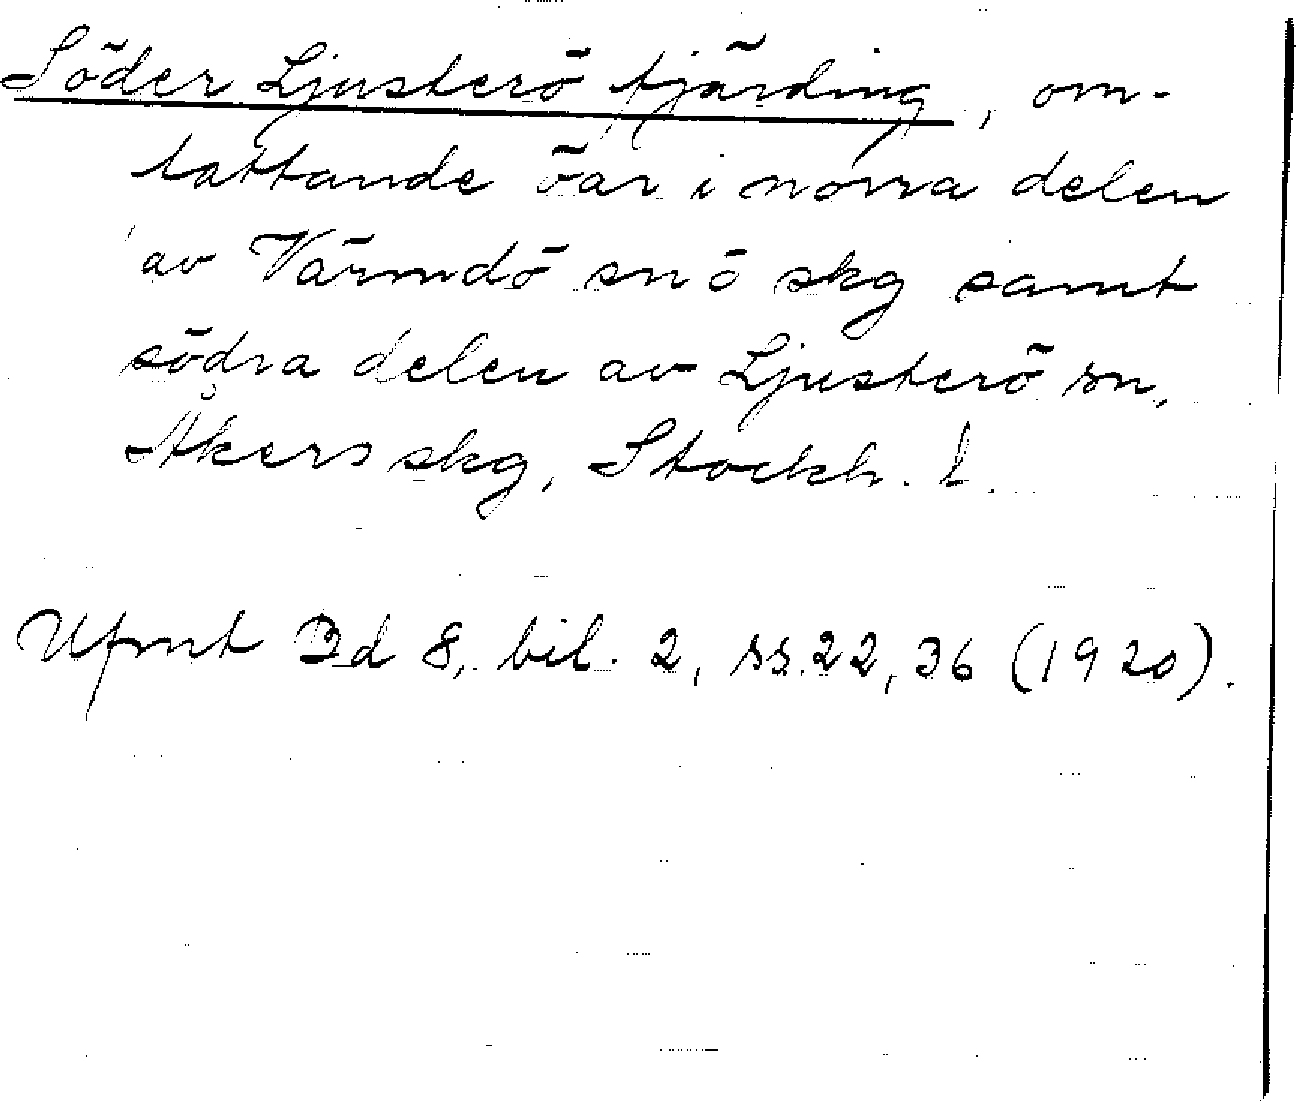 Söder Ljusterö fjärding, om-
fattande öar i norra delen
av Värmdö sn o skg samt
södra delen av Ljusterö sn,
Åkers skg, Stockh. l.
Ufmt Bd 8, bil. 2, ss. 22, 36 (1920).